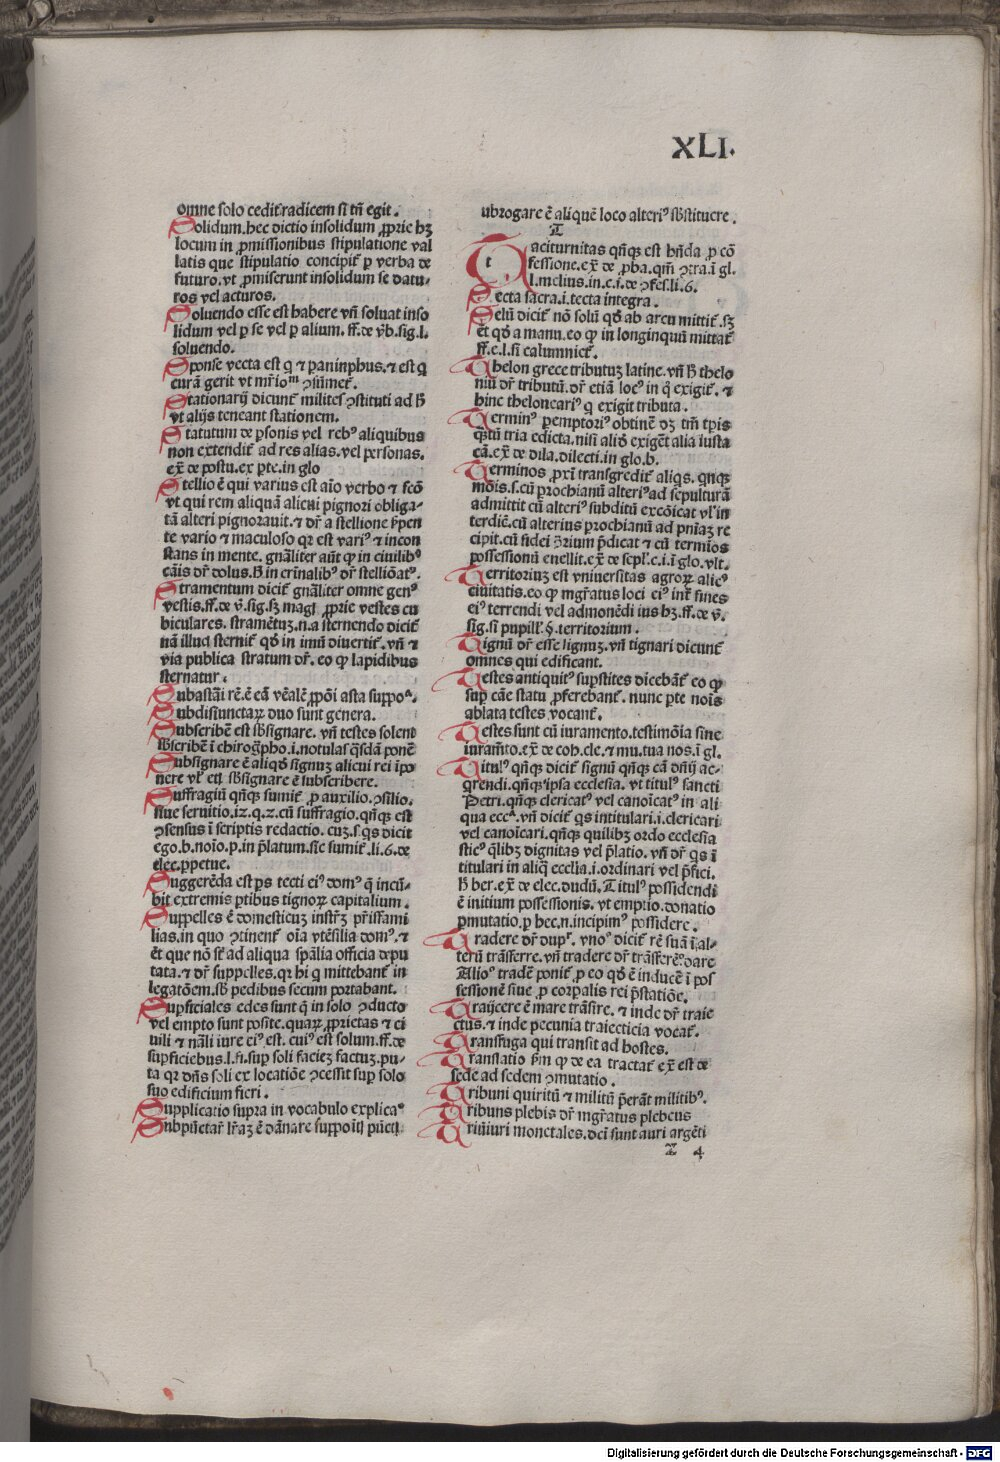 XLI.
omne solo cedit radicem si tñ egit.
Solidum. hec dictio insolidum ꝓprie hꝫ
locum in ꝓmissionibus stipulatione val
latis que stipulatio concipit̃ ꝑ verba de
futuro. vt ꝓmiserunt insolidum se datu-
ros vel acturos.
Soluendo esse est habere vñ soluat inso
lidum vel ꝑ se vel ꝑ alium. ff. de v̾b. sig. l.
soluendo.
Sponse vecta est q̃ ⁊ paninphus. ⁊ est q̃
curã gerit vt mr̃ioꝫ ꝯsũmet̃.
Stationarij dicunt̃ milites ꝯstituti ad B̃
vt alijs teneant stationem.
Statutum de ꝑsonis vel rebꝰ aliquibus
non extendit̃ ad res alias. vel personas.
ex̃ de postu. ex ꝑte. in glo
Stellio ẽ qui varius est aĩo verbo ⁊ fcõ
vt qui rem aliquã alicui pignori obliga-
tã alteri pignorauit. ⁊ dr̃ a stellione ẜpen
te vario ⁊ maculoso qꝛ est variꝰ ⁊ incon
stans in mente. gñaliter aũt ꝙ in ciuilibꝰ
cãis dr̃ dolus. B̃ in crĩnalibꝰ dr̃ stelliõatꝰ.
Stramentum dicit̃ gñaliter omne genꝰ
vestis. ff. de v̾. sig. sꝫ magꝭ ꝓprie vestes cu
biculares. stramẽtuꝫ. n. a sternendo dicit̃
nã illud sternit̃ qd̃ in imũ diuertit̃. vñ ⁊
via publica stratum dr̃. eo ꝙ lapidibus
sternatur.
Subastãi rẽ. ẽ eã vẽalẽ ꝓpõi asta suppoᵃ.
Subdisiunctaꝝ duo sunt genera.
Subscribẽ est sb̃signare. vñ testes solent
sb̃scribẽ ĩ chirog̃pho. i. notulas q̃sdã ponẽ
Subsignare ẽ aliqd̃ signuꝫ alicui rei ĩpo
nere vꝉ etĩ sb̃signare ẽ subscribere.
Suffragiũ qñqꝫ sumit̃ ꝓ auxilio. ꝯsilio.
siue seruitio. iz. q. z. cũ suffragio. qñqꝫ est
ꝯsensus ĩ scriptis redactio. cuꝫ. s. q̃s dicit
ego. b. noĩo. p. in p̃latum. sic sumit̃. li. 6. de
elec. ꝑpetue.
Suggerẽda est ps tecti eiꝰ domꝰ q̃ incũ-
bit extremis ꝑtibus tignoꝝ capitalium.
Suppelles ẽ domesticuꝫ instr̃ꝫ pr̃isfami
lias. in quo ꝯtinent̃ oĩa vtẽsilia domꝰ. ⁊
ẽt que nõ st̃ ad aliqua sp̃alia officia depu
tata. ⁊ dr̃ suppelles. qꝛ hi q̃ mittebant̃ in
legatõem. sb̃ pedibus secum portabant.
Supficiales edes sunt q̃ in solo ꝯducto
vel empto sunt posite. quaꝝ ꝓprietas ⁊ ci
uili ⁊ nãli iure eiꝰ est. cuiꝰ est solum. ff. de
supficiebus. l. fi. sup soli facieꝫ factuꝫ. pu-
ta qꝛ dñs soli ex locatiõe ꝯcessit sup solo
suo edificium fieri.
Supplicatio supra in vocabulo explicaᵒ
Subpũctar̃ lr̃aꝫ ẽ dãnare
ubrogare ẽ aliquẽ loco alteriꝰ sb̃stituere.
T
taciturnitas qñqꝫ est hñda ꝓ cõ
fessione. ex̃ de ꝓba. qm̃ ꝯtra. ĩ gl.
l. melius. in. c. i. de ꝯfes. li. 6.
Tecta sacra. i. tecta integra.
Telũ dicit̃ nõ solũ qd̃ ab arcu mittit̃. sꝫ
ẽt qd̃ a manu. eo ꝙ in longinquũ mittat̃
ff. e. l. si calumniet̃.
Thelon grece tributuꝫ latine. vñ B̃ thelo
niũ dr̃ tributũ. dr̃ etiã locꝰ in q̃ exigit̃. ⁊
hinc theloncariꝰ q̃ exigit tributa.
Terminꝰ ꝑemptoriꝰ obtinẽ dꝫ tm̃ tp̃is
q̃ꝫtũ tria edicta. nisi aliqd̃ exigẽt alia iusta
cã. ex̃ de dila. dilecti. in glo. b.
Terminos ꝓxĩ transgredit̃ aliqs. qñqꝫ
mõis. s. cũ ꝑrochianũ alteriꝰ ad sepulturã
admittit cũ alteriꝰ subditũ excõicat vꝉ in
terdic̃. cũ alterius ꝑrochianũ ad pñiaꝫ re
cipit. cũ fidei p̃dicat ⁊ cũ termĩos
possessionũ euellit. ex̃ de sepl̃. c. i. ĩ glo. vlt̃.
Territoriuꝫ est vniuersitas agroꝝ alicꝰ
ciuitatis. eo ꝙ mgr̃atus loci eiꝰ int̃ fines
eiꝰ terrendi vel admonẽdi ius hꝫ. ff. de v̾.
sig. si pupill̃. §. territorium.
Tignũ dr̃ esse lignuꝫ. vñ tignari dicunt̃
omnes qui edificant.
Testes antiquitꝰ supstites dicebãt̃ eo ꝙ
sup cãe statu ꝓferebant̃. nunc ꝑte noĩs
ablata testes vocant̃.
Testes sunt cũ iuramento. testimõia sine
iuram̃to. ex̃ de coh. cle. ⁊ mu. tua nos. ĩ gl.
Titulꝰ qñqꝫ dicit̃ signũ qñqꝫ cã dñij ac-
q̃rendi. qñqꝫ ipsa ecclesia. vt titulꝰ sancti
Petri. qñqꝫ clericatꝰ vel canoĩcatꝰ in ali
qua ecc̃ᵃ. vñ dicit̃ q̃s intitulari. i. clericari
vel canoĩcari. qñqꝫ quilibꝫ ordo ecclesia
sticꝰ q̃libꝫ dignitas vel p̃latio. vñ dr̃ q̃s ĩ
titulari in aliq̃ ecclĩa. i. ordinari vel p̃fici.
B̃ ber. ex̃ de elec. dudũ. Titulꝰ possidendi
ẽ initium possessionis. vt emptio. donatio
ꝑmutatio. ꝑ hec. n. incipimꝰ possidere.
Tradere dr̃ dupꝉ. vnoᵒ dicit̃ rẽ suã ĩ al-
terũ trãsferre. vñ tradere dr̃ trãsferẽᵒ dare
Alioᵒ tradẽ ponit̃ ꝓ eo qd̃ ẽ inducẽ ĩ pos
sessionẽ siue ꝓ corꝑalis rei p̃statiõe.
Traijcere ẽ mare trãsire. ⁊ inde dr̃ traie
ctus. ⁊ inde pecunia traiecticia vocat̃.
Transfuga qui transit ad hostes.
Translatio ẜm ꝙ de ea tractat̃ ex̃ est de
sede ad sedem ꝯmutatio.
Tribuni quiritũ ⁊ militũ p̃erãt militibꝰ.
Tribuns plebis dr̃ mgr̃atus plebeus
Triũuiri monetales. dcĩ sunt auri argẽti
Z 4
Digitalisierung gefördert durch die Deutsche Forschungsgemeinschaft - DFG